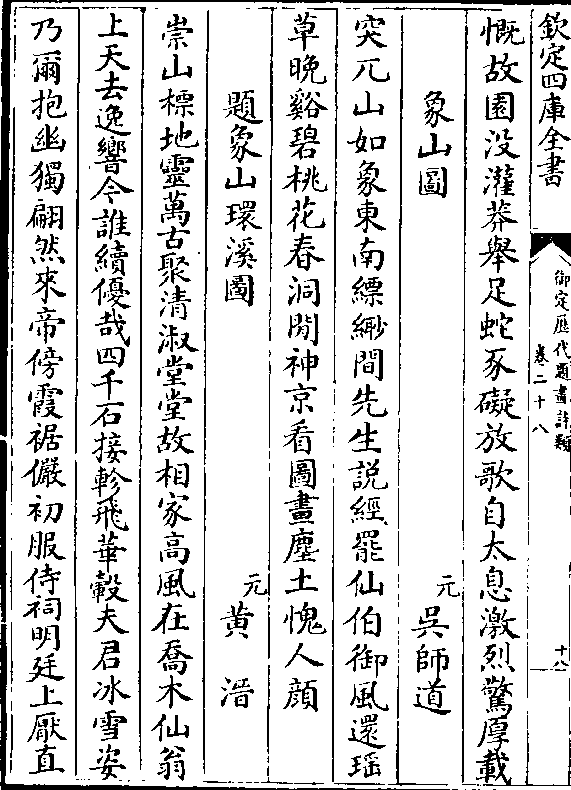 欽定四庫全書
御定歷代題畫詩類
卷二十八
十八
慨故園没灌莽舉足蛇豕礙放歌自太息激烈驚厚載
象山圖
元
吳師道
突兀山如象東南縹緲間先生説經罷仙伯御風還瑶
草晚谿碧桃花春洞閒神京看圖畫塵土愧人顔
題象山環溪圖
元
黄溍
崇山標地靈萬古聚清淑堂堂故相家高風在喬木仙翁
上天去逸響今誰續優哉四千石接軫飛華轂夫君冰雪姿
乃爾抱幽獨翩然來帝傍霞裾儼初服侍祠明廷上厭直